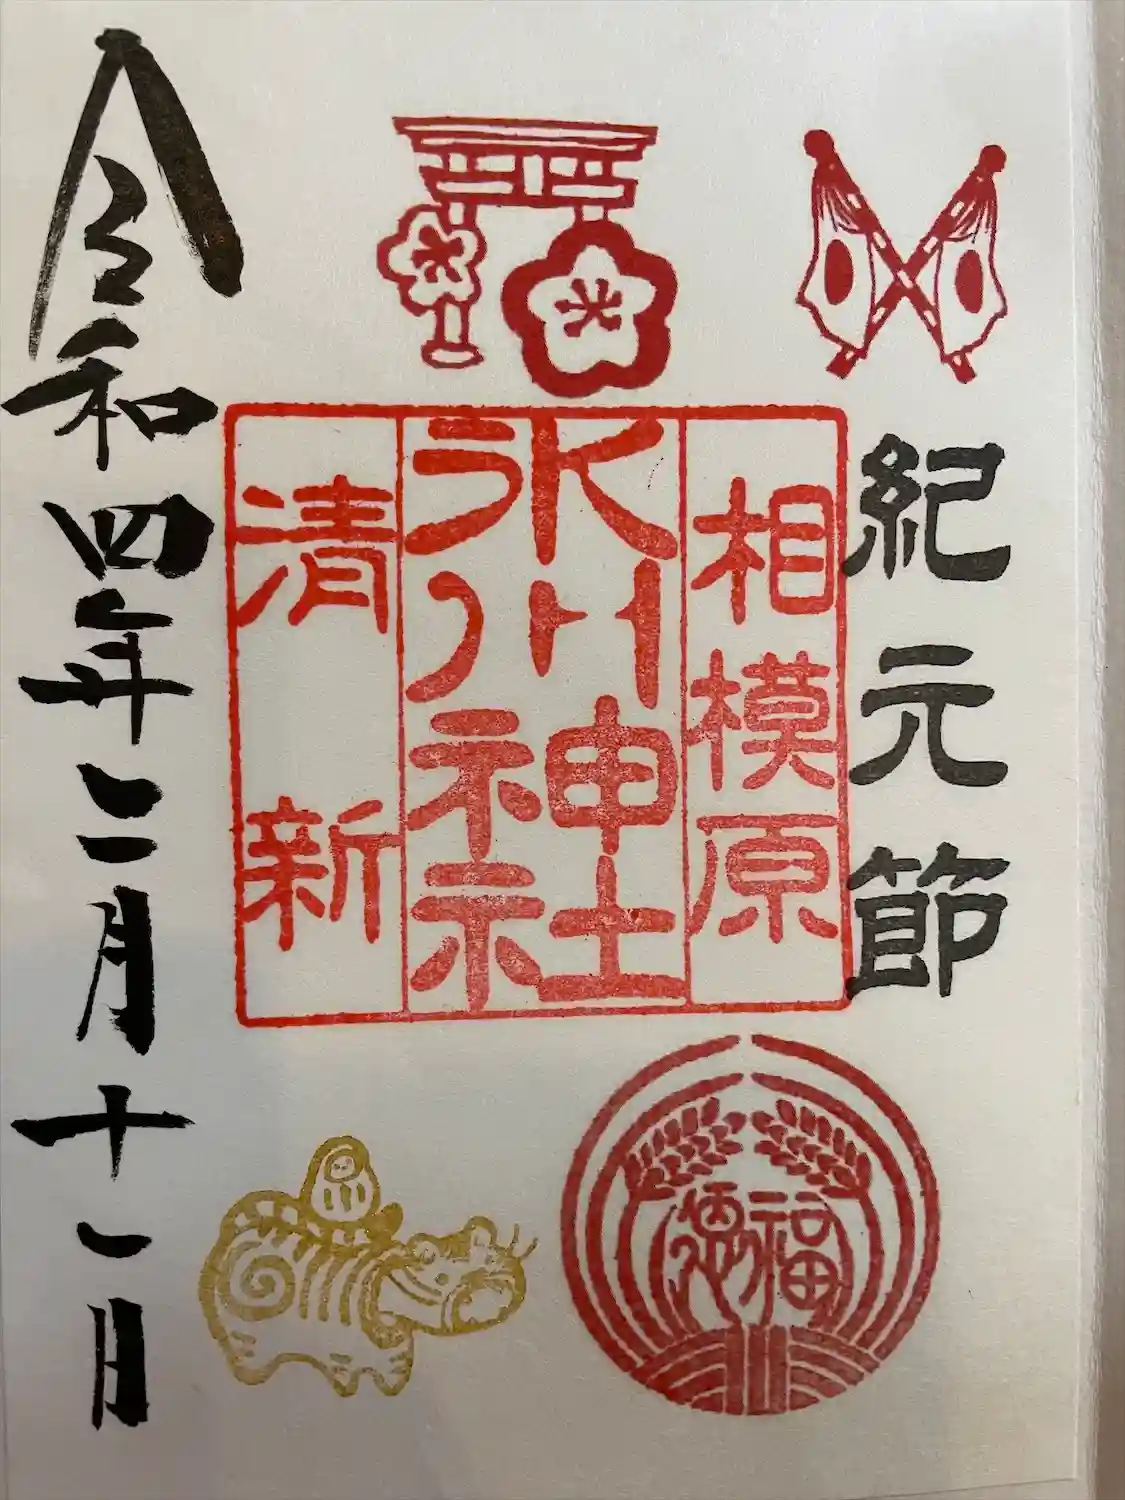 紀元節
相模原
氷川神社
清新
福徳
令和四年二月十一日